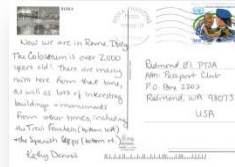 ROMA
Now we are in Rome, Italy
The Colosseum is over 2,000
years old! There are many
ruins here from that time,
as well as lots of interesting
buildings + monuments
from other times, including
the Trevi Fountain (bottom left)
+ the Spanish Steps (bottom rt)
Kathy Dennis
Redmond El PTSA
Attn: Passport Club
P.O. Box 2202
Redmond, WA 98073
USA